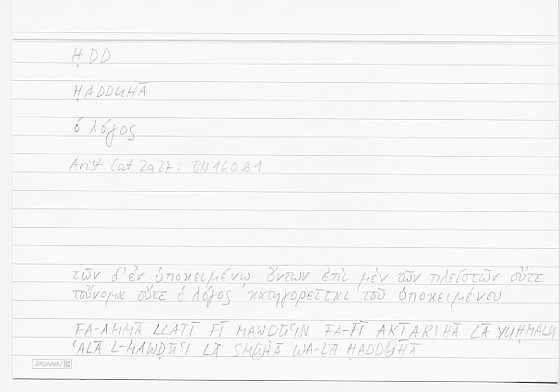 ḤDD
ḤADDUHĀ
ὁ λόγος
Arist. Cat 2a27: BN160B1
τῶν δ'ἐν ὑποκειμένω ὄντων ἐπὶ μὲν τῶν πλείστῶν οὔτε
τοὔνομα οὔτε ὁ λόγος κατηγορεῖται τοῦ ὑποκειμένου
FA-AMMĀ LLATĪ FĪ MAWḌŪʿIN FA-FĪ AKṮARIHĀ LĀ YUḤMALU
ʿALĀ L-MAWḌŪʿI LĀ SMUHĀ WA-LĀ ḤADDUHĀ